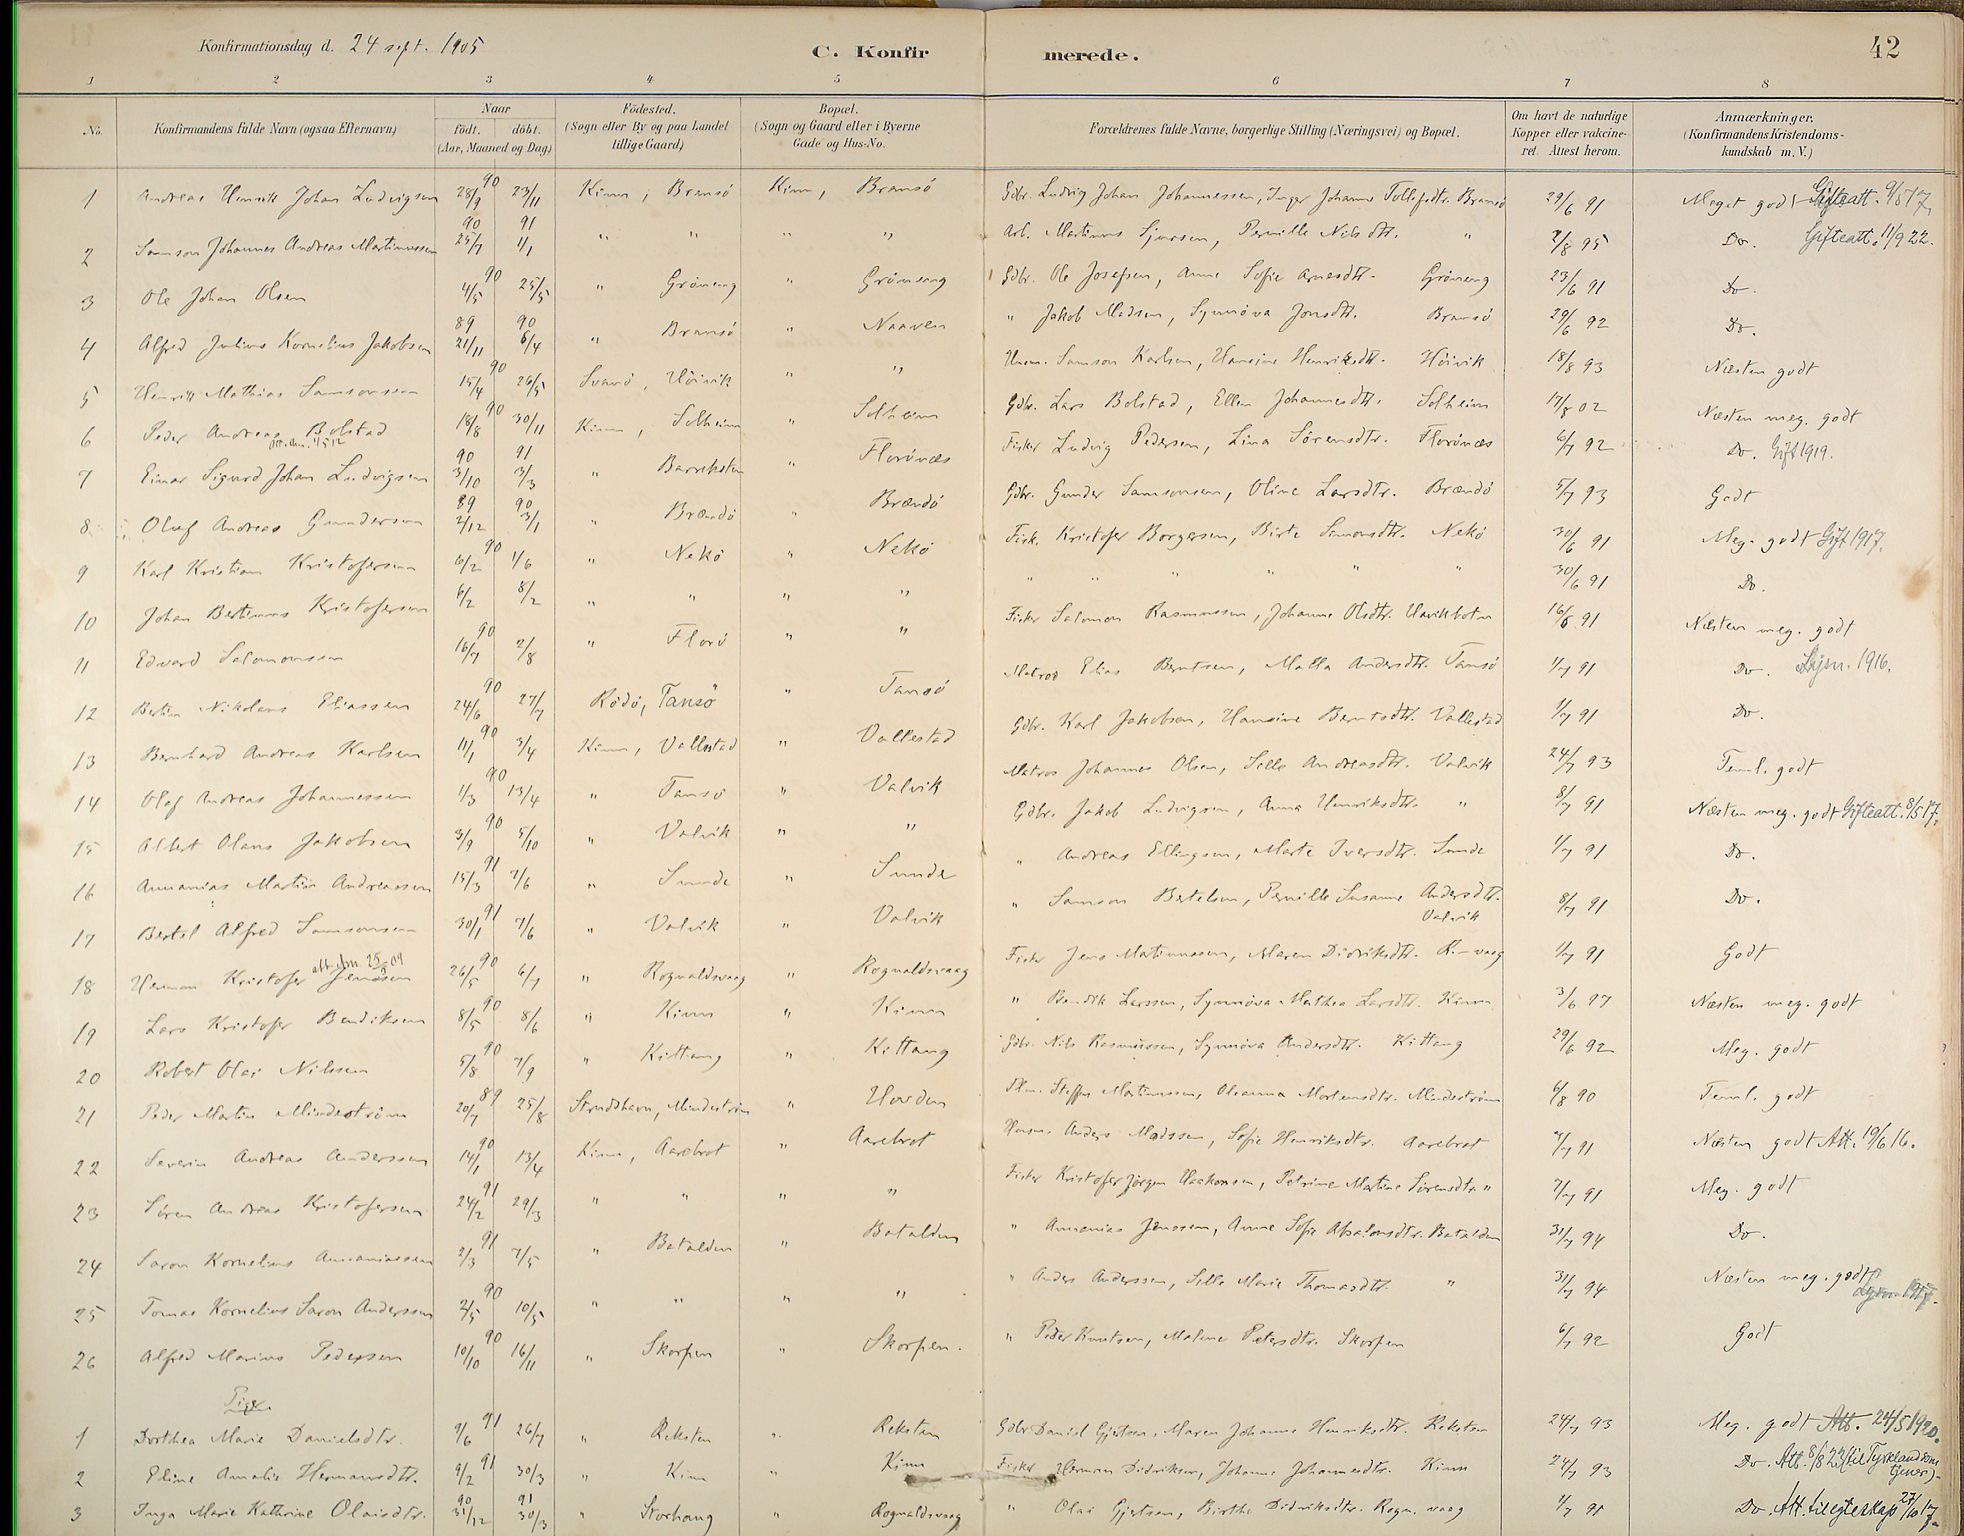 Konfirmationsdag d. 24 sept. 1905
C. Konfir merede. 42
1 2 3 4 5 6 7 8
No. Konfirmandens fulde Navn (ogsaa Efternavn) Naar født. døbt. (Aar, Maaned og Dag) Födested. (Sogn eller By og paa Landet tillige Gaard) Bopæl. (Sogn og Gaard eller i Byerne Gade og Hus-No. Forældrenes fulde Navne, borgerlige Stilling (Næringsvei) og Bopæl. Om havt de naturlige Kopper eller vakcineret. Attest herom. Anmærkninger. (Konfirmandens Kristendomskundskab m. V.)
1 Andreas Henrik Johan Ludvigsen 28/9 90 23/11 Kinn, Bransö Kinn, Bransö Gdbr. Ludvig Johan Johannessen, Inger Johanne Tollefsdtr. Bransö 29/6 91 Meget godt Gifteatt. 9/5 17.
2 Samson Johannes Andreas Martinussen 25/7 90 1/1 91 " " " " Arb. Martinus Sjursen, Pernille Nilsdtr. " 7/8 95 Do. Gifteatt. 11/9 22.
3 Ole Johan Olsen 4/5 90 25/5 " Gröneng " Gröneng Gdbr. Ole Josefsen, Anne Sofie Arnesdtr. Gröneng 23/6 91 Do.
4 Alfred Julius Kornelius Jakobsen 21/11 89 6/4 90 " Bransö " Naaven " Jakob Madsen, Synnöva Jonsdtr. Bransö 29/6 92 Do.
5 Henrik Mathias Samsonsen 15/4 90 26/5 Svanö, Höivik " " Husm. Samson Karlsen, Hansine Henriksdtr. Höivik 18/8 93 Næsten godt
6 Peder Andreas Bolstad 18/8 90 30/11 Kinn, Solheim " Solheim Gdbr. Lars Bolstad, Ellen Johannesdtr. Solheim 17/8 02 Næsten meg. godt
7 Einar Sigurd Johan Ludvigsen 3/10 90 3/3 91 " Bareksten " Florönæs Fisker Ludvig Pedersen, Lina Sörensdtr. Florönæs 6/7 92 Do. Gift 1919.
8 Oluf Andreas Gundersen 2/12 89 3/1 90 " Brandö " Brandö Gdbr. Gunder Samsonsen, Oline Larsdtr. Brandö 5/7 93 Godt
9 Karl Kristian Kristofersen 6/2 90 1/6 " Nekö " Nekö Fisk. Kristofer Borgersen, Birte Simonsdtr. Nekö 30/6 91 Meg. godt Gift 1917.
10 Johan Bertinus Kristofersen 6/2 8/2 " " " " " " " " " " 30/6 91 Do.
11 Edvard Salomonsen 16/7 90 2/8 " Florö " " Fisker Salomon Rasmussen, Johanne Olsdtr. Havikbotn 16/6 91 Næsten meg. godt
12 Bertin Nikolaus Eliassen 24/6 90 27/7 Rödö, Tansö " Tansö Matros Elias Berntsen, Malla Andersdtr. Tansö 1/7 91 Do. Lysn. 1916.
13 Bernhard Andreas Karlsen 11/1 90 3/4 Kinn, Vallestad " Vallestad Gdbr. Karl Jakobsen, Hansine Berntsdtr. Vallestad 1/7 91 Do.
14 Olaf Andreas Johannessen 1/3 90 13/4 " Tansö " Valvik Matros Johannes Olsen, Sille Andreasdtr. Valvik 24/7 93 Teml. godt
15 Albert Olaus Jakobsen 3/9 90 5/10 " Valvik " " Gdbr. Jakob Ludvigsen, Anna Henriksdtr. " 8/7 91 Næsten meg. godt Gifteatt. 8/5 17.
16 Annanias Martin Andreassen 15/3 91 7/6 " Sunde " Sunde " Andreas Ellingsen, Marte Iversdtr. Sunde 1/7 91 Do.
17 Bertel Alfred Samsonsen 30/1 91 7/6 " Valvik " Valvik " Samson Bertelsen, Pernille Susanne Andersdtr. Valvik 8/7 91 Do.
18 Herman Kristofer Jensen 26/5 90 6/7 " Rognaldsvaag " Rognaldsvaag Fisker Jens Martinussen, Maren Didriksdtr. R.-vaag 1/7 91 Godt
19 Lars Kristofer Bendiksen 8/5 90 8/6 " Kinn " Kinn " Bendik Larssen, Synnöva Mathea Larsdtr. Kinn 3/6 97 Næsten meg. godt
20 Robert Olai Nilssen 5/8 90 7/9 " Kittang " Kittang Gdbr. Nils Rasmussen, Synnöva Andersdtr. Kittang 29/6 92 Meg. godt
21 Peder Martin Mindeström 20/7 89 25/8 Strudshavn, Mindeström " Hovden Steffen Martinussen, Oleanna Mortensdtr. Mindeström 6/8 90 Teml. godt
22 Severin Andreas Anderssen 14/1 90 13/4 Kinn, Aarebrot " Aarebrot Husm. Anders Madssen, Sofie Henriksdtr. Aarebrot 7/7 91 Næsten godt Att. 19/6 16.
23 Sören Andreas Kristofersen 24/2 91 29/3 " " " " Fisker Kristofer Jörgen Haakonsen, Petrine Martine Sörensdtr. " 7/7 91 Meg. godt
24 Saron Kornelius Annaniassen 2/3 91 7/5 " Batalden " Batalden " Annanias Jenssen, Anne Sofie Absalonsdtr. Batalden 31/7 94 Do.
25 Tomas Kornelius Saron Anderssen 2/5 90 10/5 " " " " " Anders Anderssen, Sille Marie Thomasdtr. " 31/7 94 Næsten meg. godt Lysn. 1917.
26 Alfred Marius Pedersen 10/10 90 16/11 " Skorpen " Skorpen. " Peder Knutsen, Malene Petersdtr. Skorpen 6/7 92 Godt
Piger
1 Dorthea Marie Danielsdtr. 9/6 91 26/7 " Reksten " Reksten Gdbr Daniel Gjertsen, Maren Johanne Henriksdtr. Reksten 24/7 93 Meg. godt Att. 24/5 1920.
2 Eline Amalie Hermansdtr. 9/2 91 30/3 " Kinn " Kinn Fisker Herman Didriksen, Johanne Johannesdtr. Kinn 24/7 93 Do. Att. 8/8 22 (til Tyskland som tjener).
3 Inga Marie Kathrine Olaisdtr. 31/12 90 30/3 91 " Storhaug " Rognaldsvaag " Olai Gjertsen, Birthe Didriksdtr. Rogn. vaag 1/7 91 Do. Att. til egteskap 27/10 17.